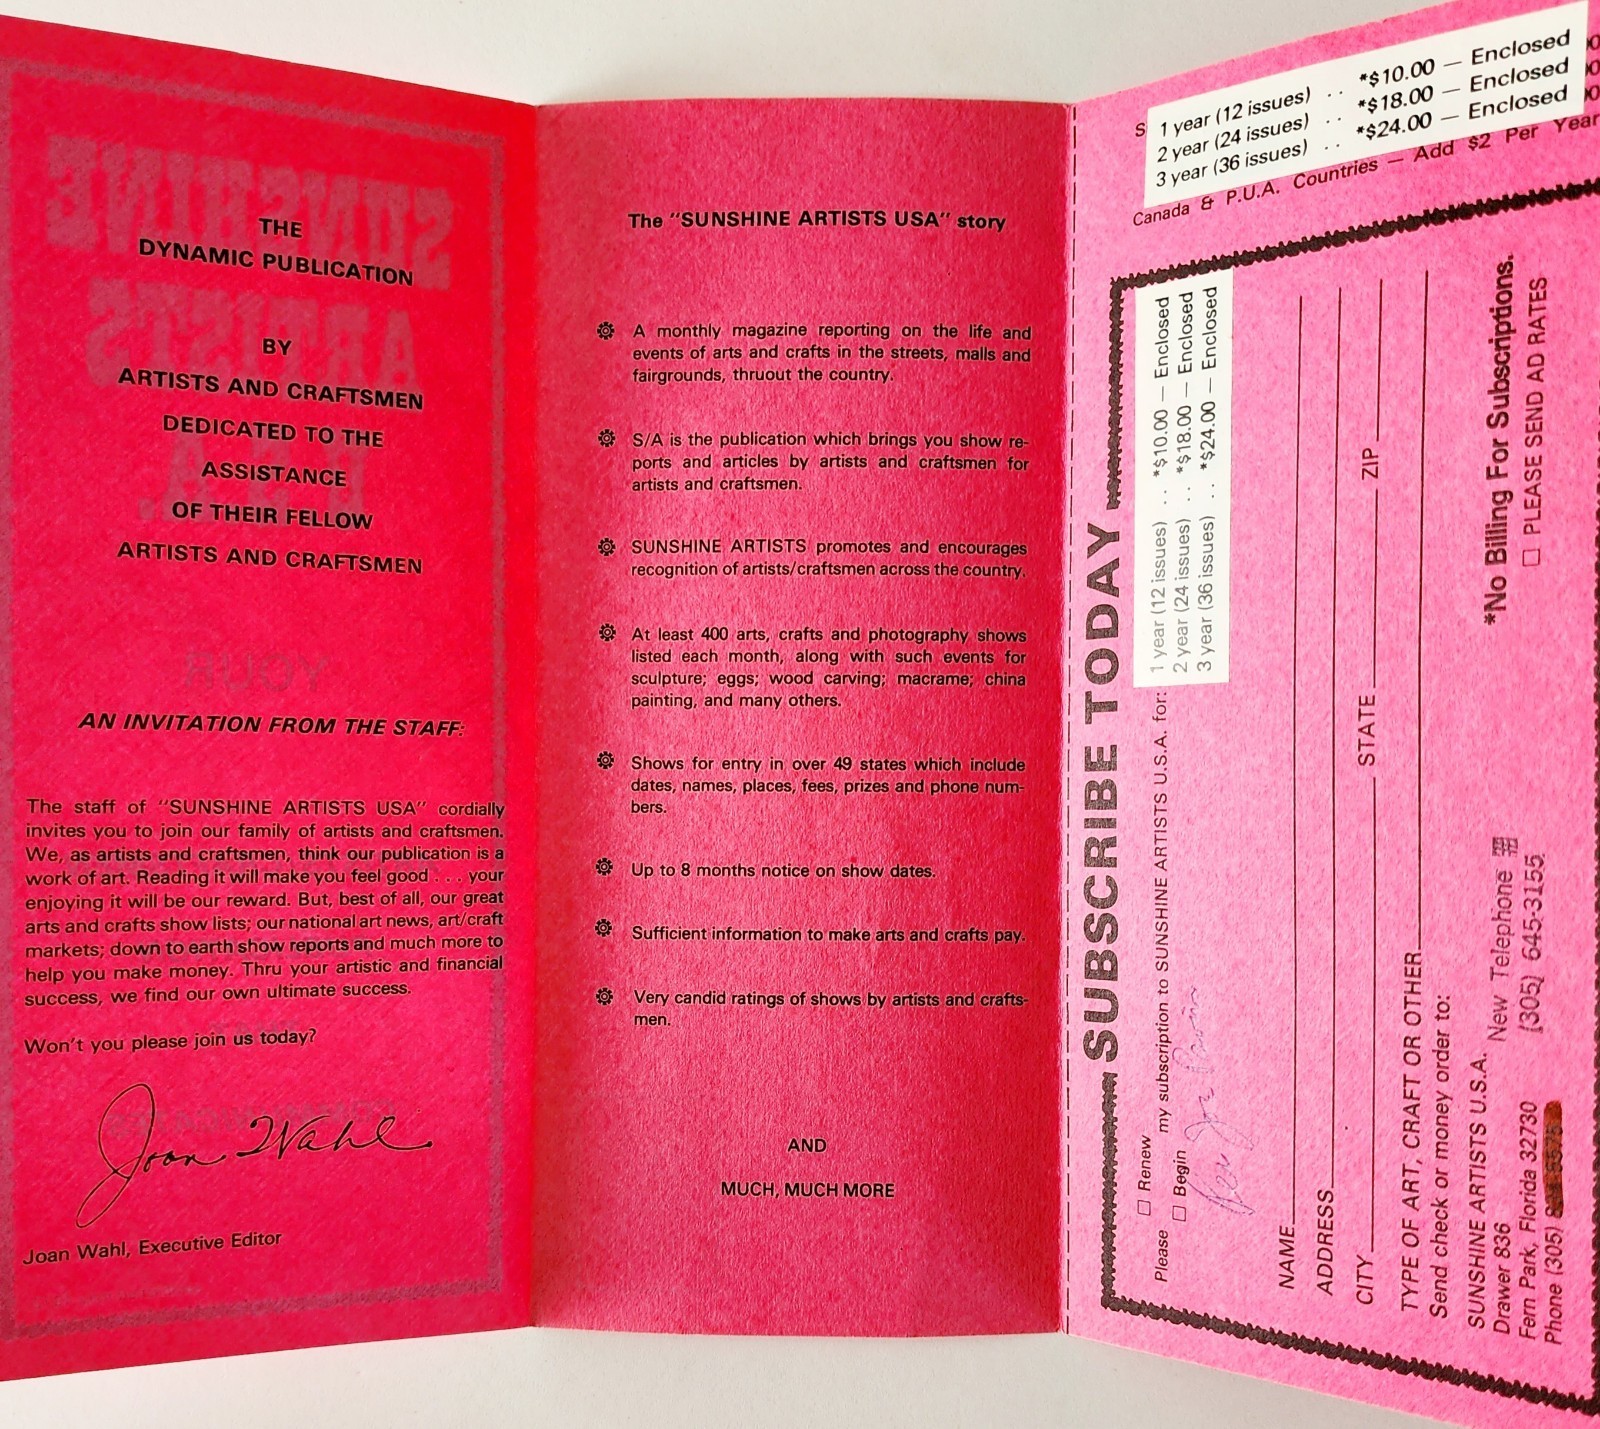 THE
DYNAMIC PUBLICATION
BY
ARTISTS AND CRAFTSMEN
DEDICATED TO THE
ASSISTANCE
OF THEIR FELLOW
ARTISTS AND CRAFTSMEN
AN INVITATION FROM THE STAFF:
The staff of "SUNSHINE ARTISTS USA" cordially
invites you to join our family of artists and craftsmen.
We, as artists and craftsmen, think our publication is a
work of art. Reading it will make you feel good . . . your
enjoying it will be our reward. But, best of all, our great
arts and crafts show lists; our national art news, art/craft
markets; down to earth show reports and much more to
help you make money. Thru your artistic and financial
success, we find our own ultimate success.
Won't you please join us today?
Joan Wahl
Joan Wahl, Executive Editor
The "SUNSHINE ARTISTS USA" story
A monthly magazine reporting on the life and
events of arts and crafts in the streets, malls and
fairgrounds, thruout the country.
S/A is the publication which brings you show re-
ports and articles by artists and craftsmen for
artists and craftsmen.
SUNSHINE ARTISTS promotes and encourages
recognition of artists/craftsmen across the country.
At least 400 arts, crafts and photography shows
listed each month, along with such events for
sculpture; eggs; wood carving; macrame; china
painting, and many others.
Shows for entry in over 49 states which include
dates, names, places, fees, prizes and phone num-
bers.
Up to 8 months notice on show dates.
Sufficient information to make arts and crafts pay.
Very candid ratings of shows by artists and crafts-
men.
AND
MUCH, MUCH MORE
S 1 year (12 issues) . . *$10.00 — Enclosed
2 year (24 issues) . . *$18.00 — Enclosed
3 year (36 issues) . . *$24.00 — Enclosed
Canada & P.U.A. Countries — Add $2 Per Year
SUBSCRIBE TODAY
Please ☐ Renew
☐ Begin my subscription to SUNSHINE ARTISTS U.S.A. for:
1 year (12 issues) . . *$10.00 — Enclosed
2 year (24 issues) . . *$18.00 — Enclosed
3 year (36 issues) . . *$24.00 — Enclosed
NAME
ADDRESS
CITY STATE ZIP
TYPE OF ART, CRAFT OR OTHER
Send check or money order to:
SUNSHINE ARTISTS U.S.A.
Drawer 836
Fern Park, Florida 32730
Phone (305)
New Telephone #
(305) 645-3155
*No Billing For Subscriptions.
☐ PLEASE SEND AD RATES